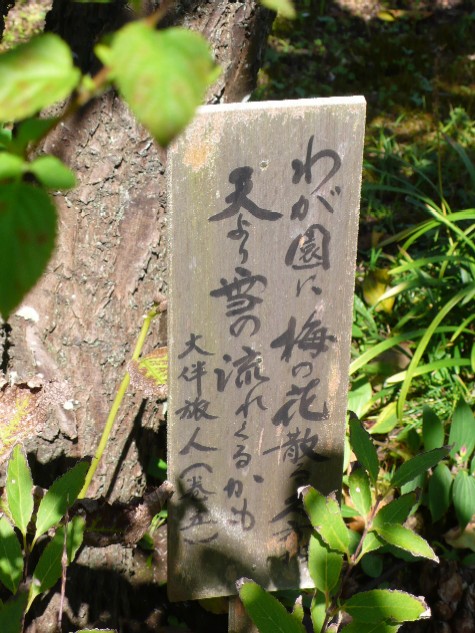 わが園に梅の花散る
天より雪の流れくるかも
大伴旅人（巻五）